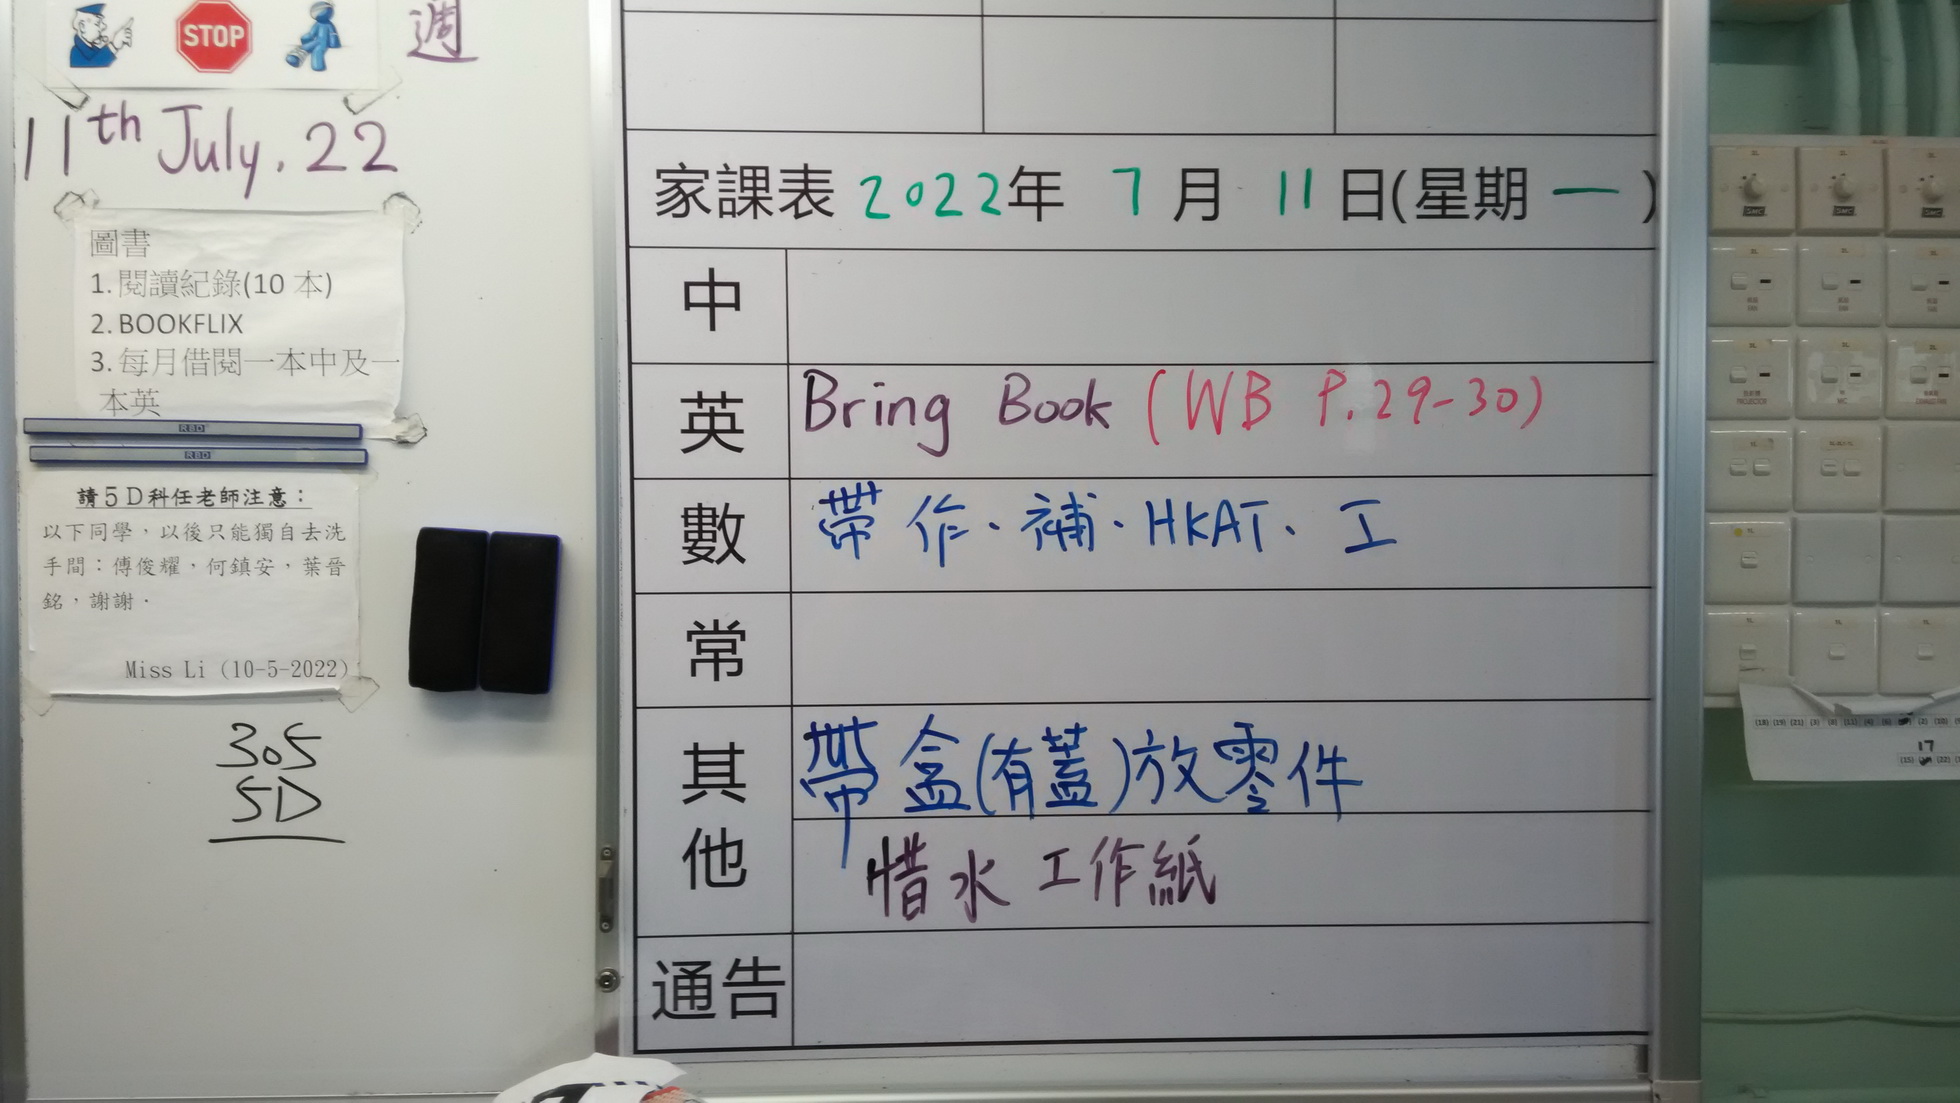 STOP
週
11th July. 22
圖書
1. 閱讀紀錄(10 本)
2. BOOKFLIX
3. 每月借閱一本中及一
本英
RBD
RBD
請５Ｄ科任老師注意：
以下同學，以後只能獨自去洗
手間：傅俊耀，何鎮安，葉晉
銘，謝謝．
Miss Li (10-5-2022)
305
5D
家課表 2022年 7 月 11 日(星期 一 )
中
英 Bring Book (WB P.29-30)
數 帶 作、補、HKAT、工
常
其他
帶 盒(有蓋)放零件
惜水 工作紙
通告
17